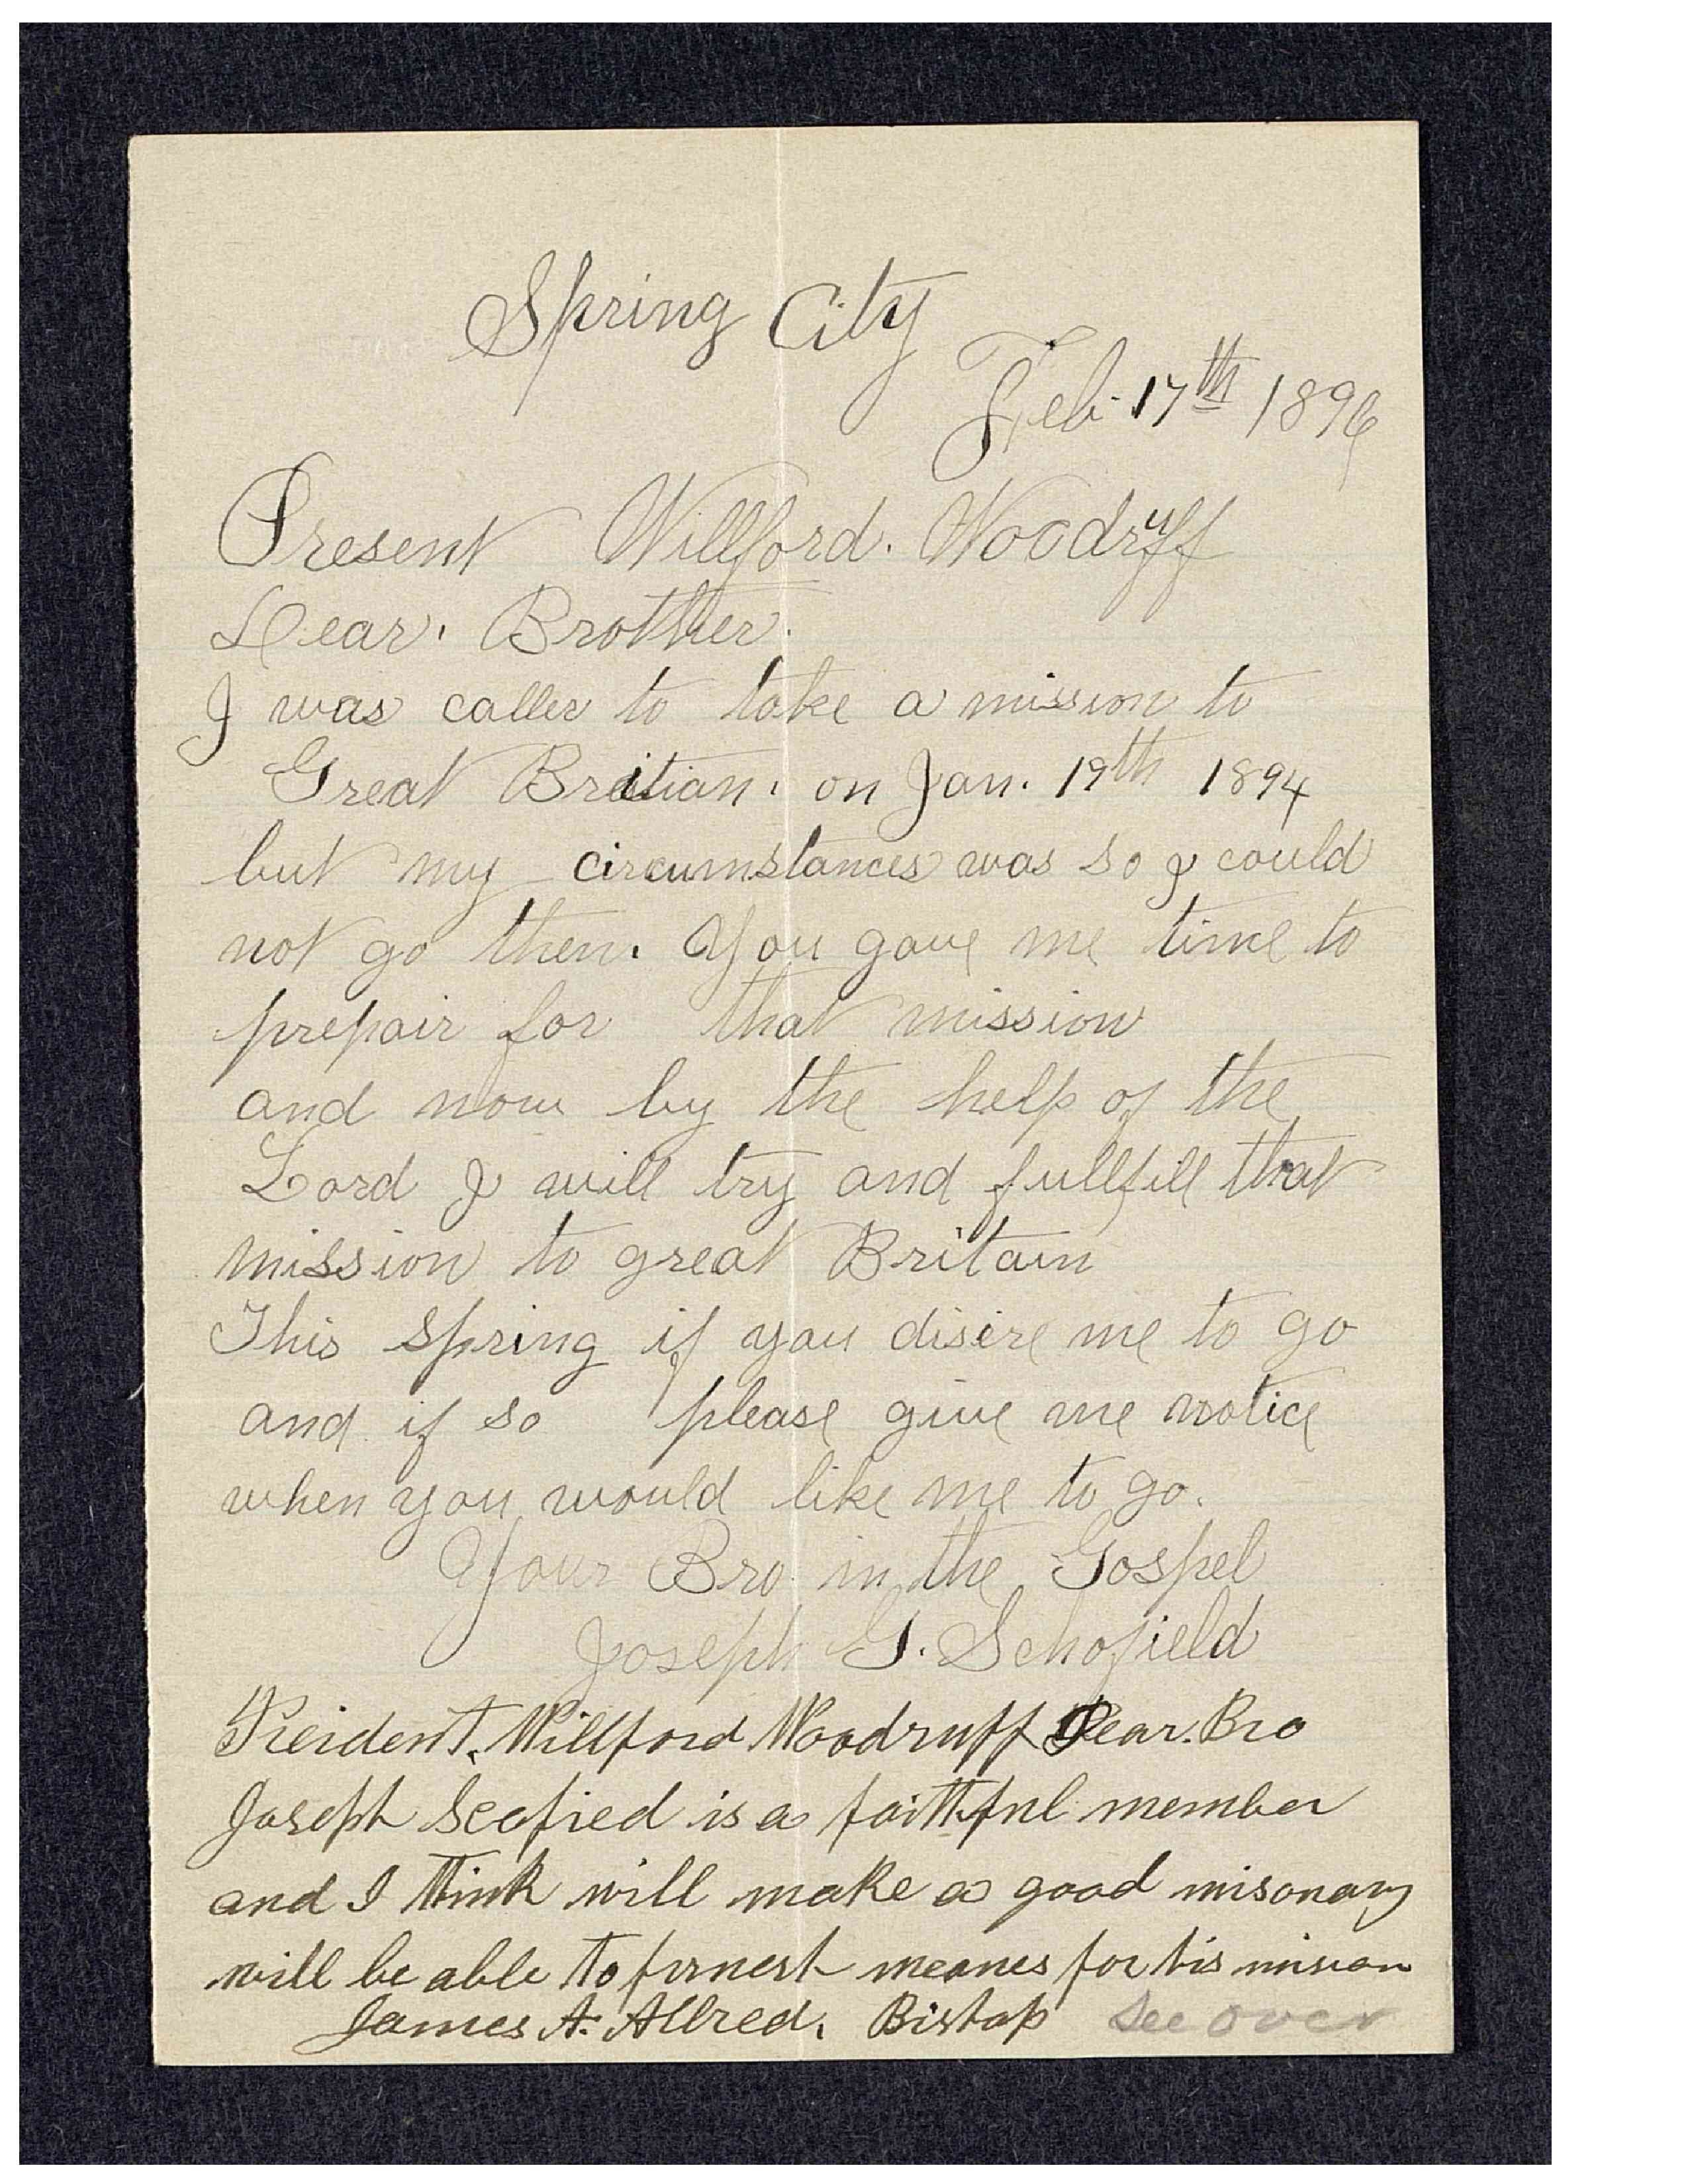 Spring City
Feb. 17th 1896
Present Willford. Woodruff
Dear. Brother.
I was caller to take a mission to
Great Britian. on Jan. 19th 1894
but my circumstances was so I could
not go then. You gave me time to
prepair for that mission
and now by the help of the
Lord I will try and fullfill that
mission to great Britain
This spring if you disire me to go
and if so please give me notice
when you would like me to go.
Your Bro. in the Gospel
Joseph G. Schofield
Preident, Willford Woodruff Dear. Bro
Joseph Scofied is a faithful member
and I think will make a good misonary
will be able to fornesh meanes for his mision
James A. Allred. Bishop see over